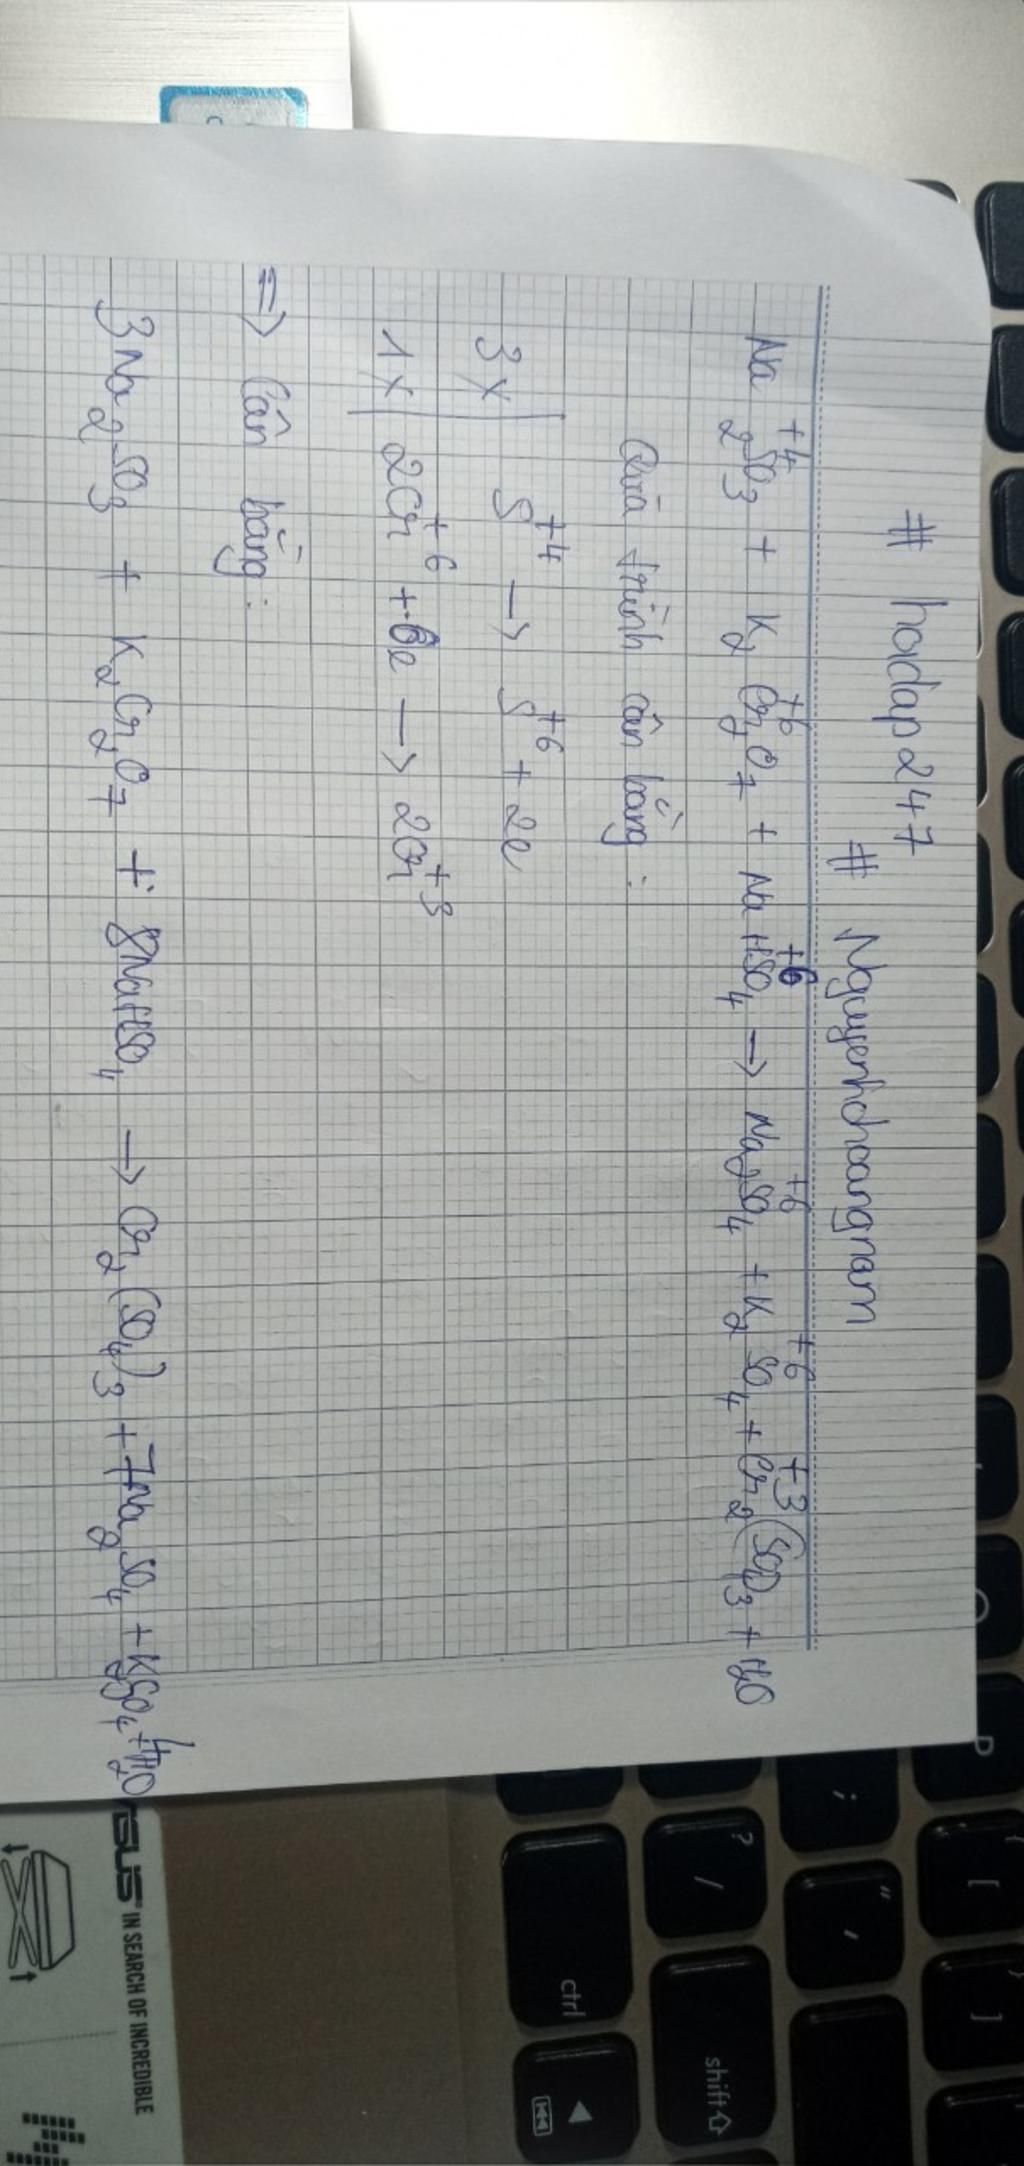 # hoidap247
# Nguyenhoangnam
Na₂S⁺⁴O₃ + K₂Cr₂⁺⁶O₇ + NaHS⁺⁶O₄ → Na₂S⁺⁶O₄ + K₂S⁺⁶O₄ + Cr₂⁺³(SO₄)₃ + H₂O
Quá trình cân bằng :
3x | S⁺⁴ → S⁺⁶ + 2e
1x | 2Cr⁺⁶ + 6e → 2Cr⁺³
=> Cân bằng :
3Na₂SO₃ + K₂Cr₂O₇ + 8NaHSO₄ → Cr₂(SO₄)₃ + 7Na₂SO₄ + K₂SO₄ + 4H₂O
ASUS IN SEARCH OF INCREDIBLE
ctrl
shift
? /
;
" '
[
]
P